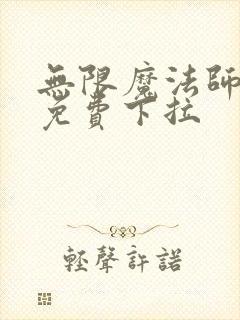 無限魔法師
免費下拉
輕聲許諾